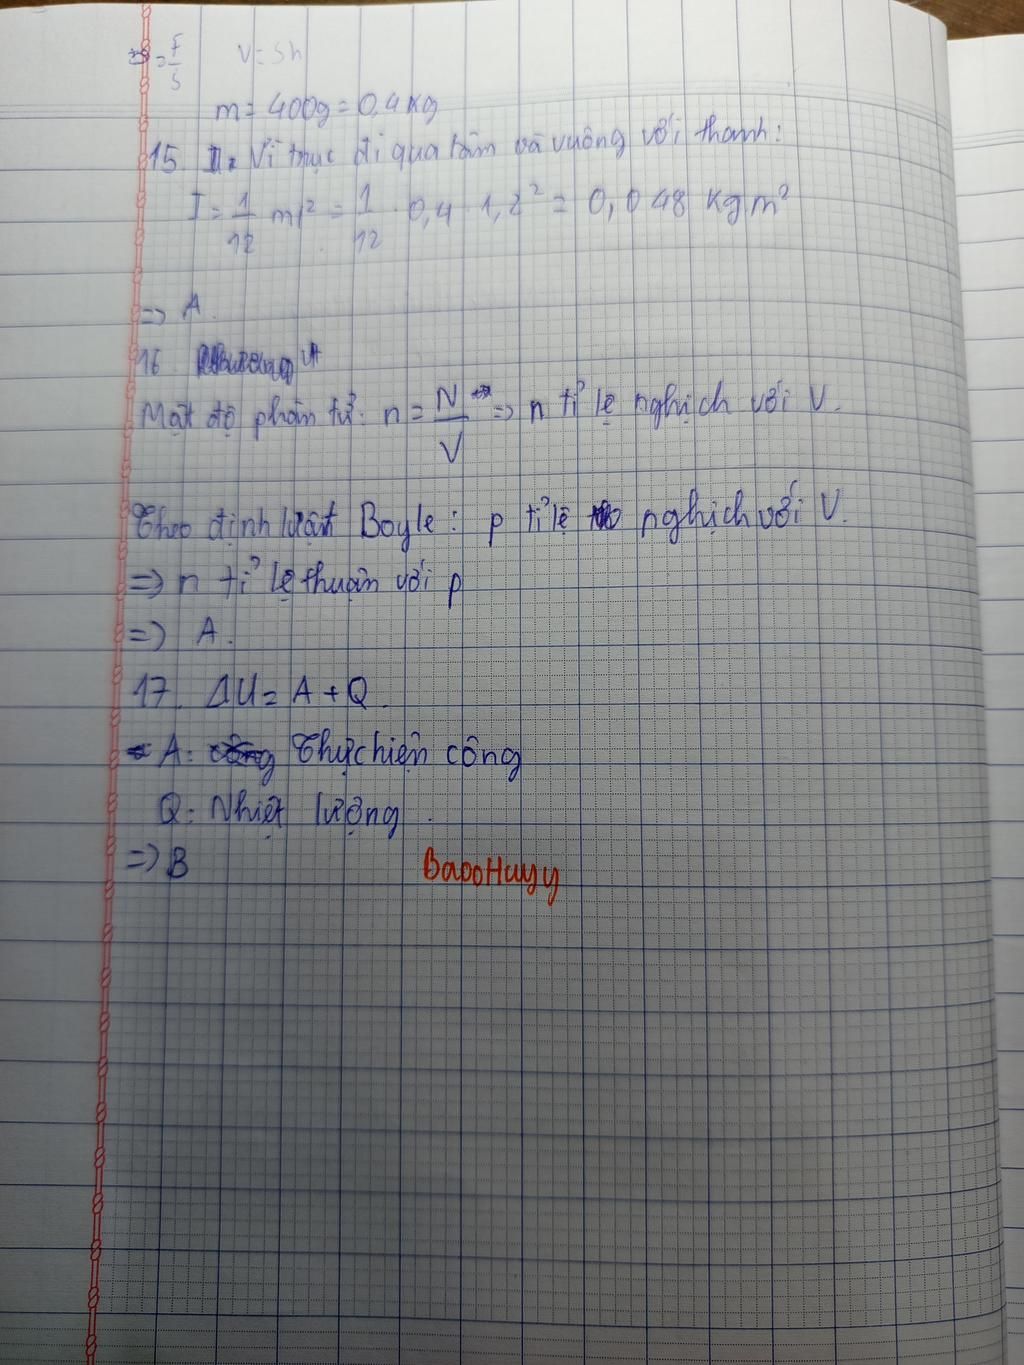 = F/S V = Sh
m = 400g = 0,4 kg
15. Vì trục đi qua tâm và vuông với thanh:
I = 1/12 ml² = 1/12 . 0,4 . 1,2² = 0,048 kgm²
=> A.
16
Mật độ phân tử: n = N/V => n tỉ lệ nghịch với V.
Theo định luật Boyle: p tỉ lệ nghịch với V.
=> n tỉ lệ thuận với p
=> A.
17. ΔU = A + Q.
A: Thực hiện công
Q: Nhiệt lượng.
=> B
BaooHuyy